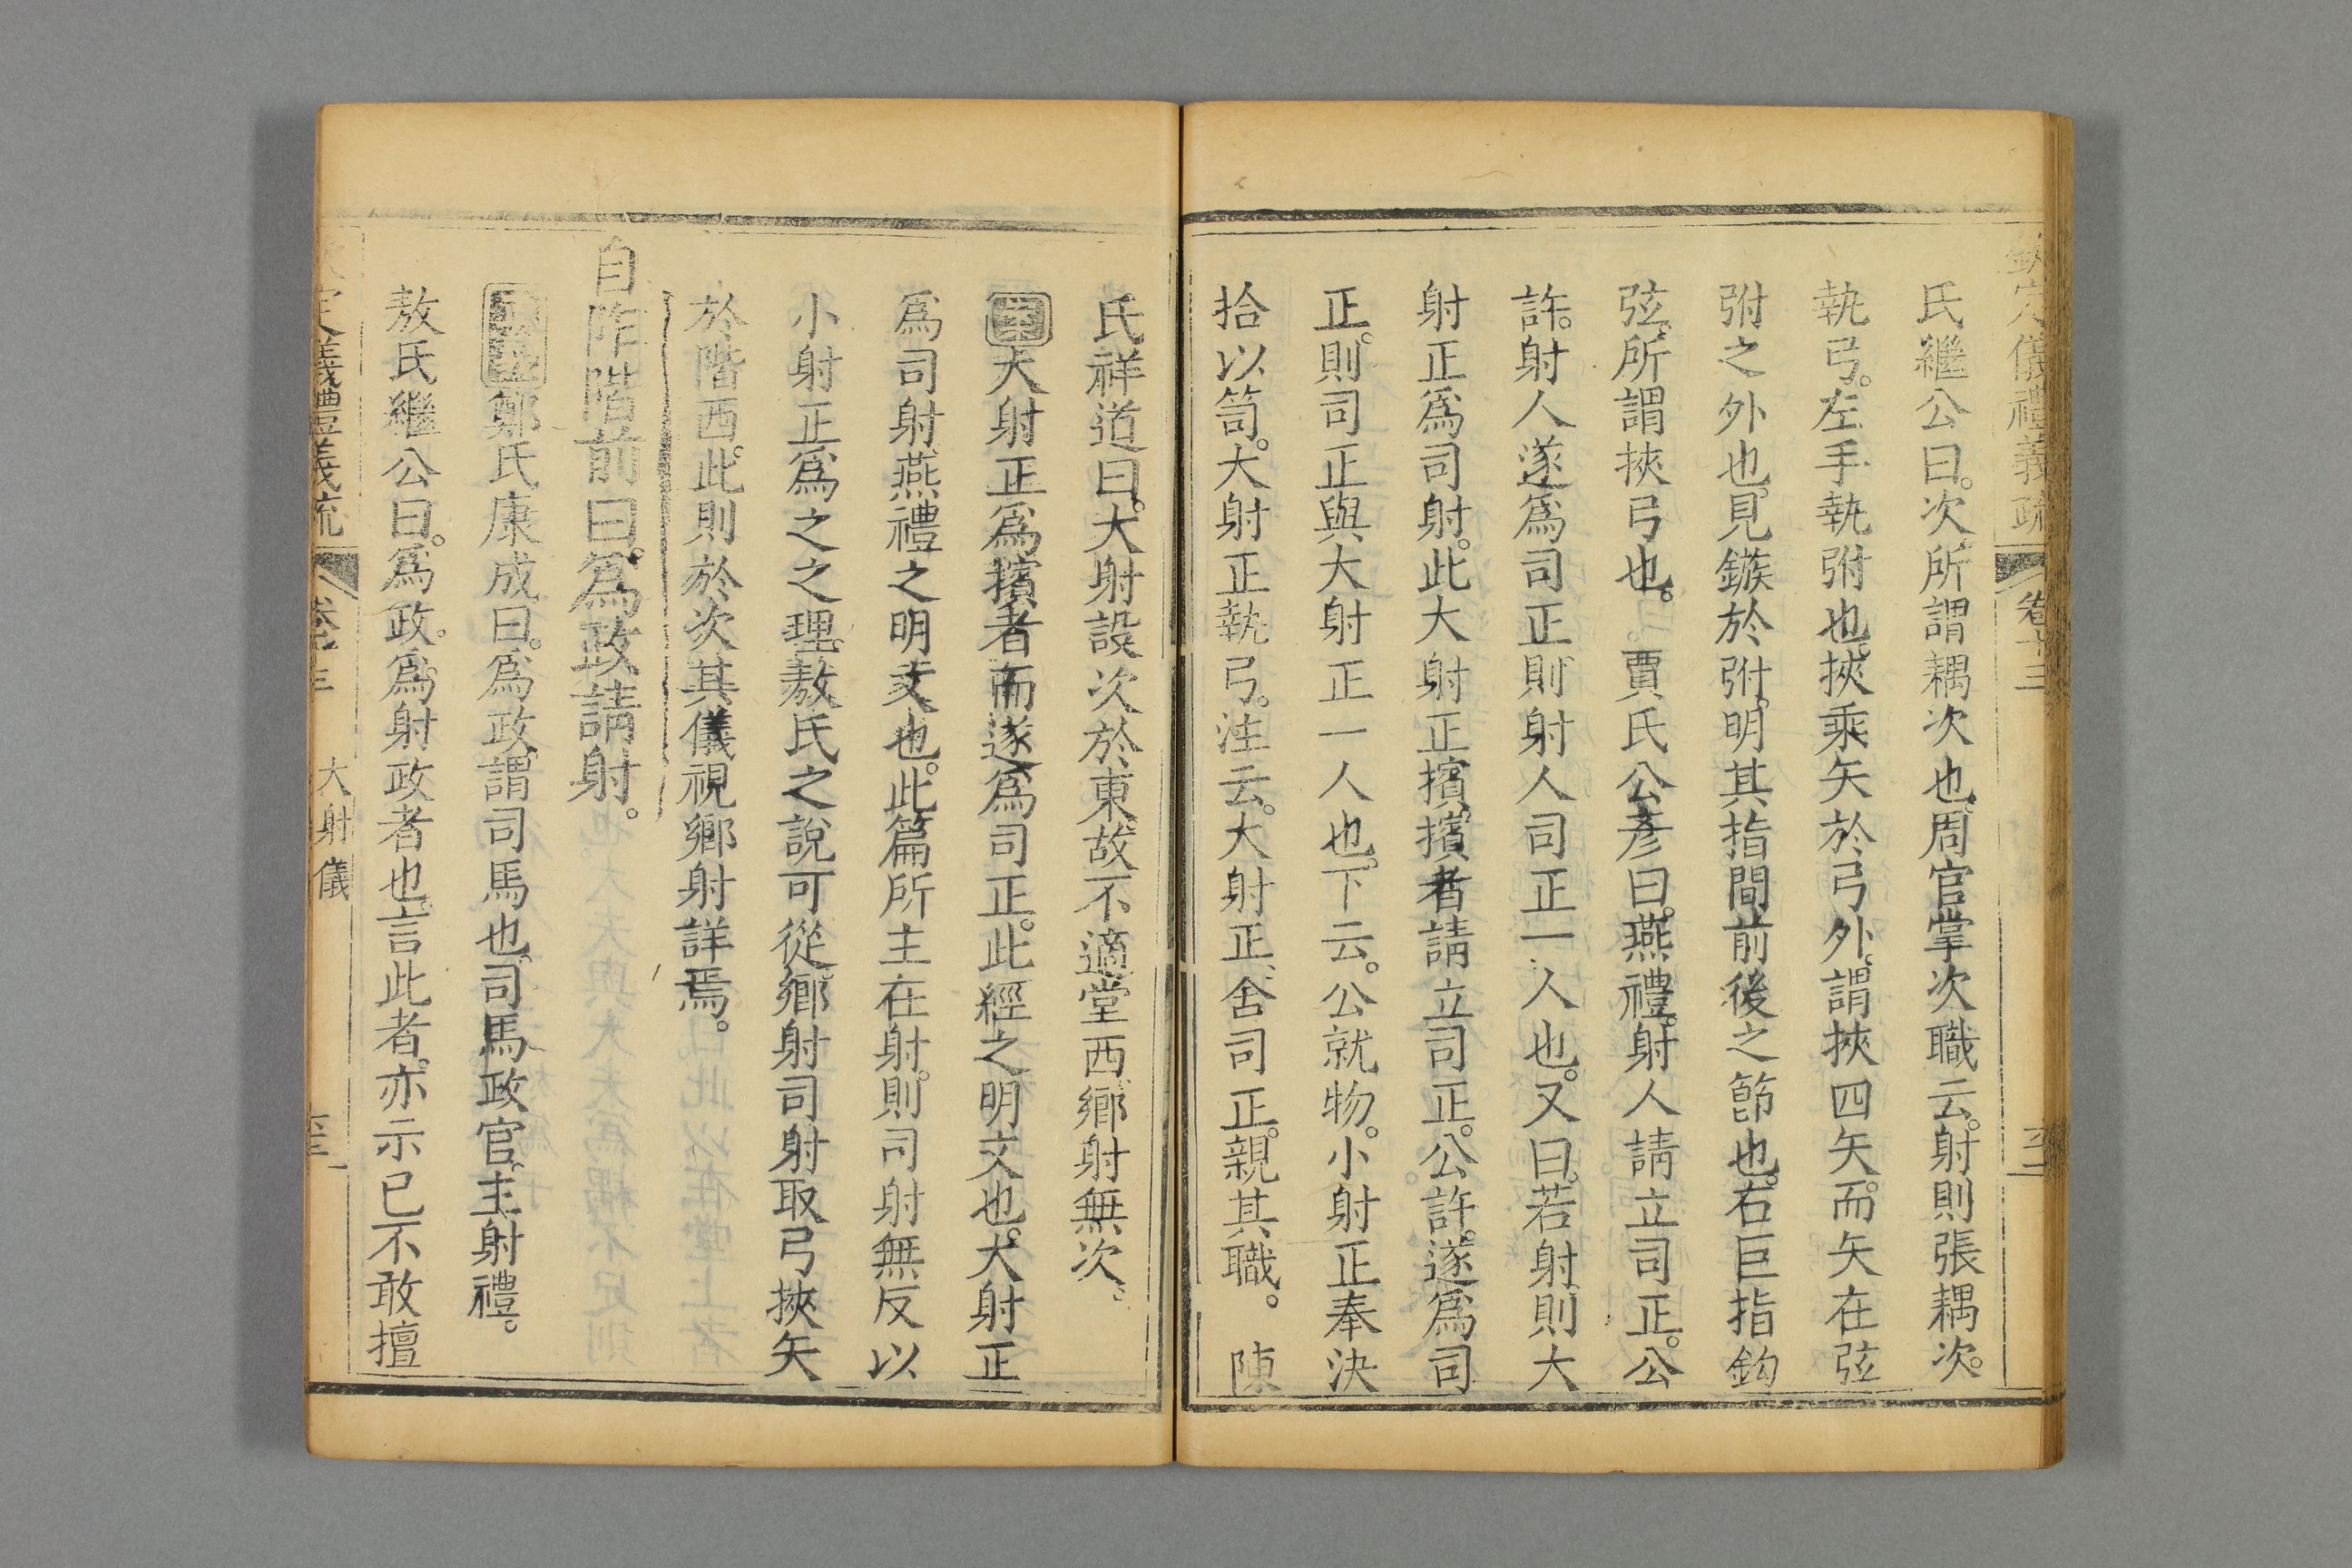 欽定儀禮義疏 卷十三
氏繼公曰。次所謂耦次也。周官掌次職云。射則張耦次。
執弓。左手執弣也。挾乘矢於弓外。謂挾四矢。而矢在弦
弣之外也。見鏃於弣。明其指間前後之節也。右巨指鈎
弦。所謂挾弓也。 賈氏公彥曰。燕禮。射人請立司正。公
許。射人遂爲司正。則射人司正一人也。又曰。若射。則大
射正爲司射。此大射正擯。擯者請立司正。公許。遂爲司
正。則司正與大射正一人也。下云。公就物。小射正奉決
拾以笥。大射正執弓。注云。大射正舍司正。親其職。 陳
氏祥道曰。大射設次於東。故不適堂西。鄉射無次。
案大射正爲擯者。而遂爲司正。此經之明文也。大射正
爲司射。燕禮之明文也。此篇所主在射。則司射無反以
小射正爲之之理。敖氏之說可從。鄉射司射取弓挾矢
於階西。此則於次。其儀視鄉射詳焉。
自阼階前曰。爲政請射。
鄭氏康成曰。爲政。謂司馬也。司馬政官。主射禮。
敖氏繼公曰。爲政。爲射政者也。言此者。亦示已不敢擅
定儀禮義疏 卷十三 大射儀